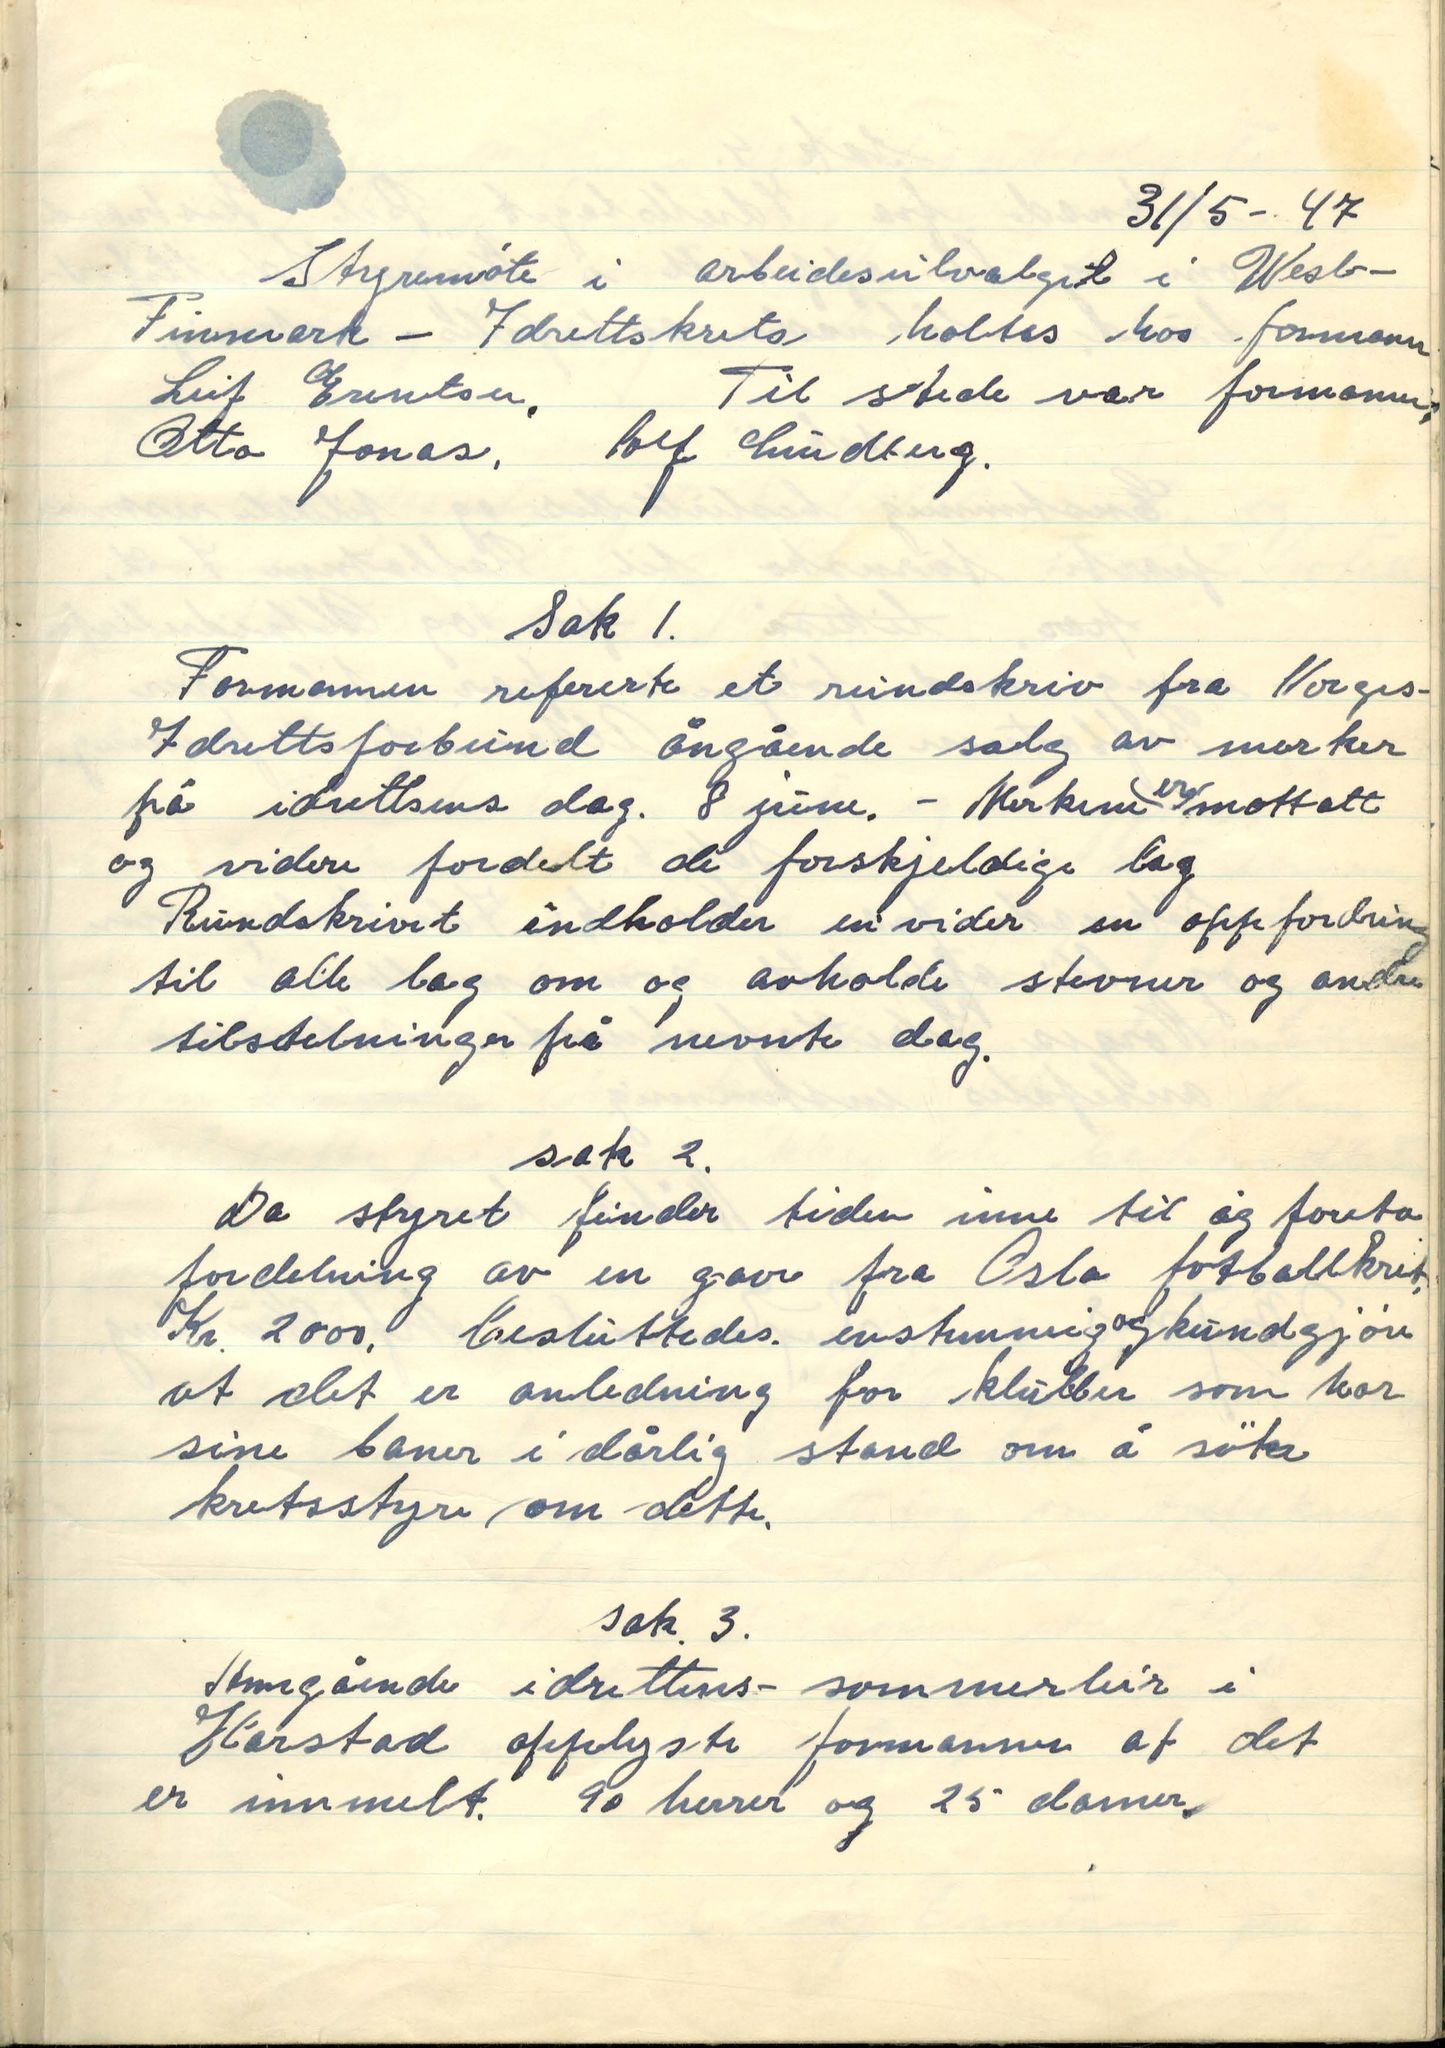 31/5 - 47
Styremöte i arbeidesutvalget i West-
Finnmark - Idrettskrets holtes hos formann
Leif Erentsen. Til stede var formannen,
Otto Jonas. Alf Lindberg.
Sak 1.
Formannen refererte et rundskriv fra Norges-
Idrettsforbund ångående salg av merker
på idrettsens dag. 8 june. - Merkene er mottatt
og videre fordelt de forskjeldige lag
Rundskrivet indholder en vider en oppfordring
til alle lag om og avholde stevner og andre
tilstelninger på nevnte dag.
sak 2.
Da styret finder tiden inne til åg foreta
fordelning av en gave fra Oslo fotballkrets,
Kr. 2000. besluttedes. enstemmig og kundgjöre
at det er anledning for klubber som har
sine baner i dårlig stand om å söke
kretsstyre om dette.
sak. 3.
idrettens- sommerleir i
Harstad opplyste formannen at det
er innmelt. 90 herrer og 25 damer.